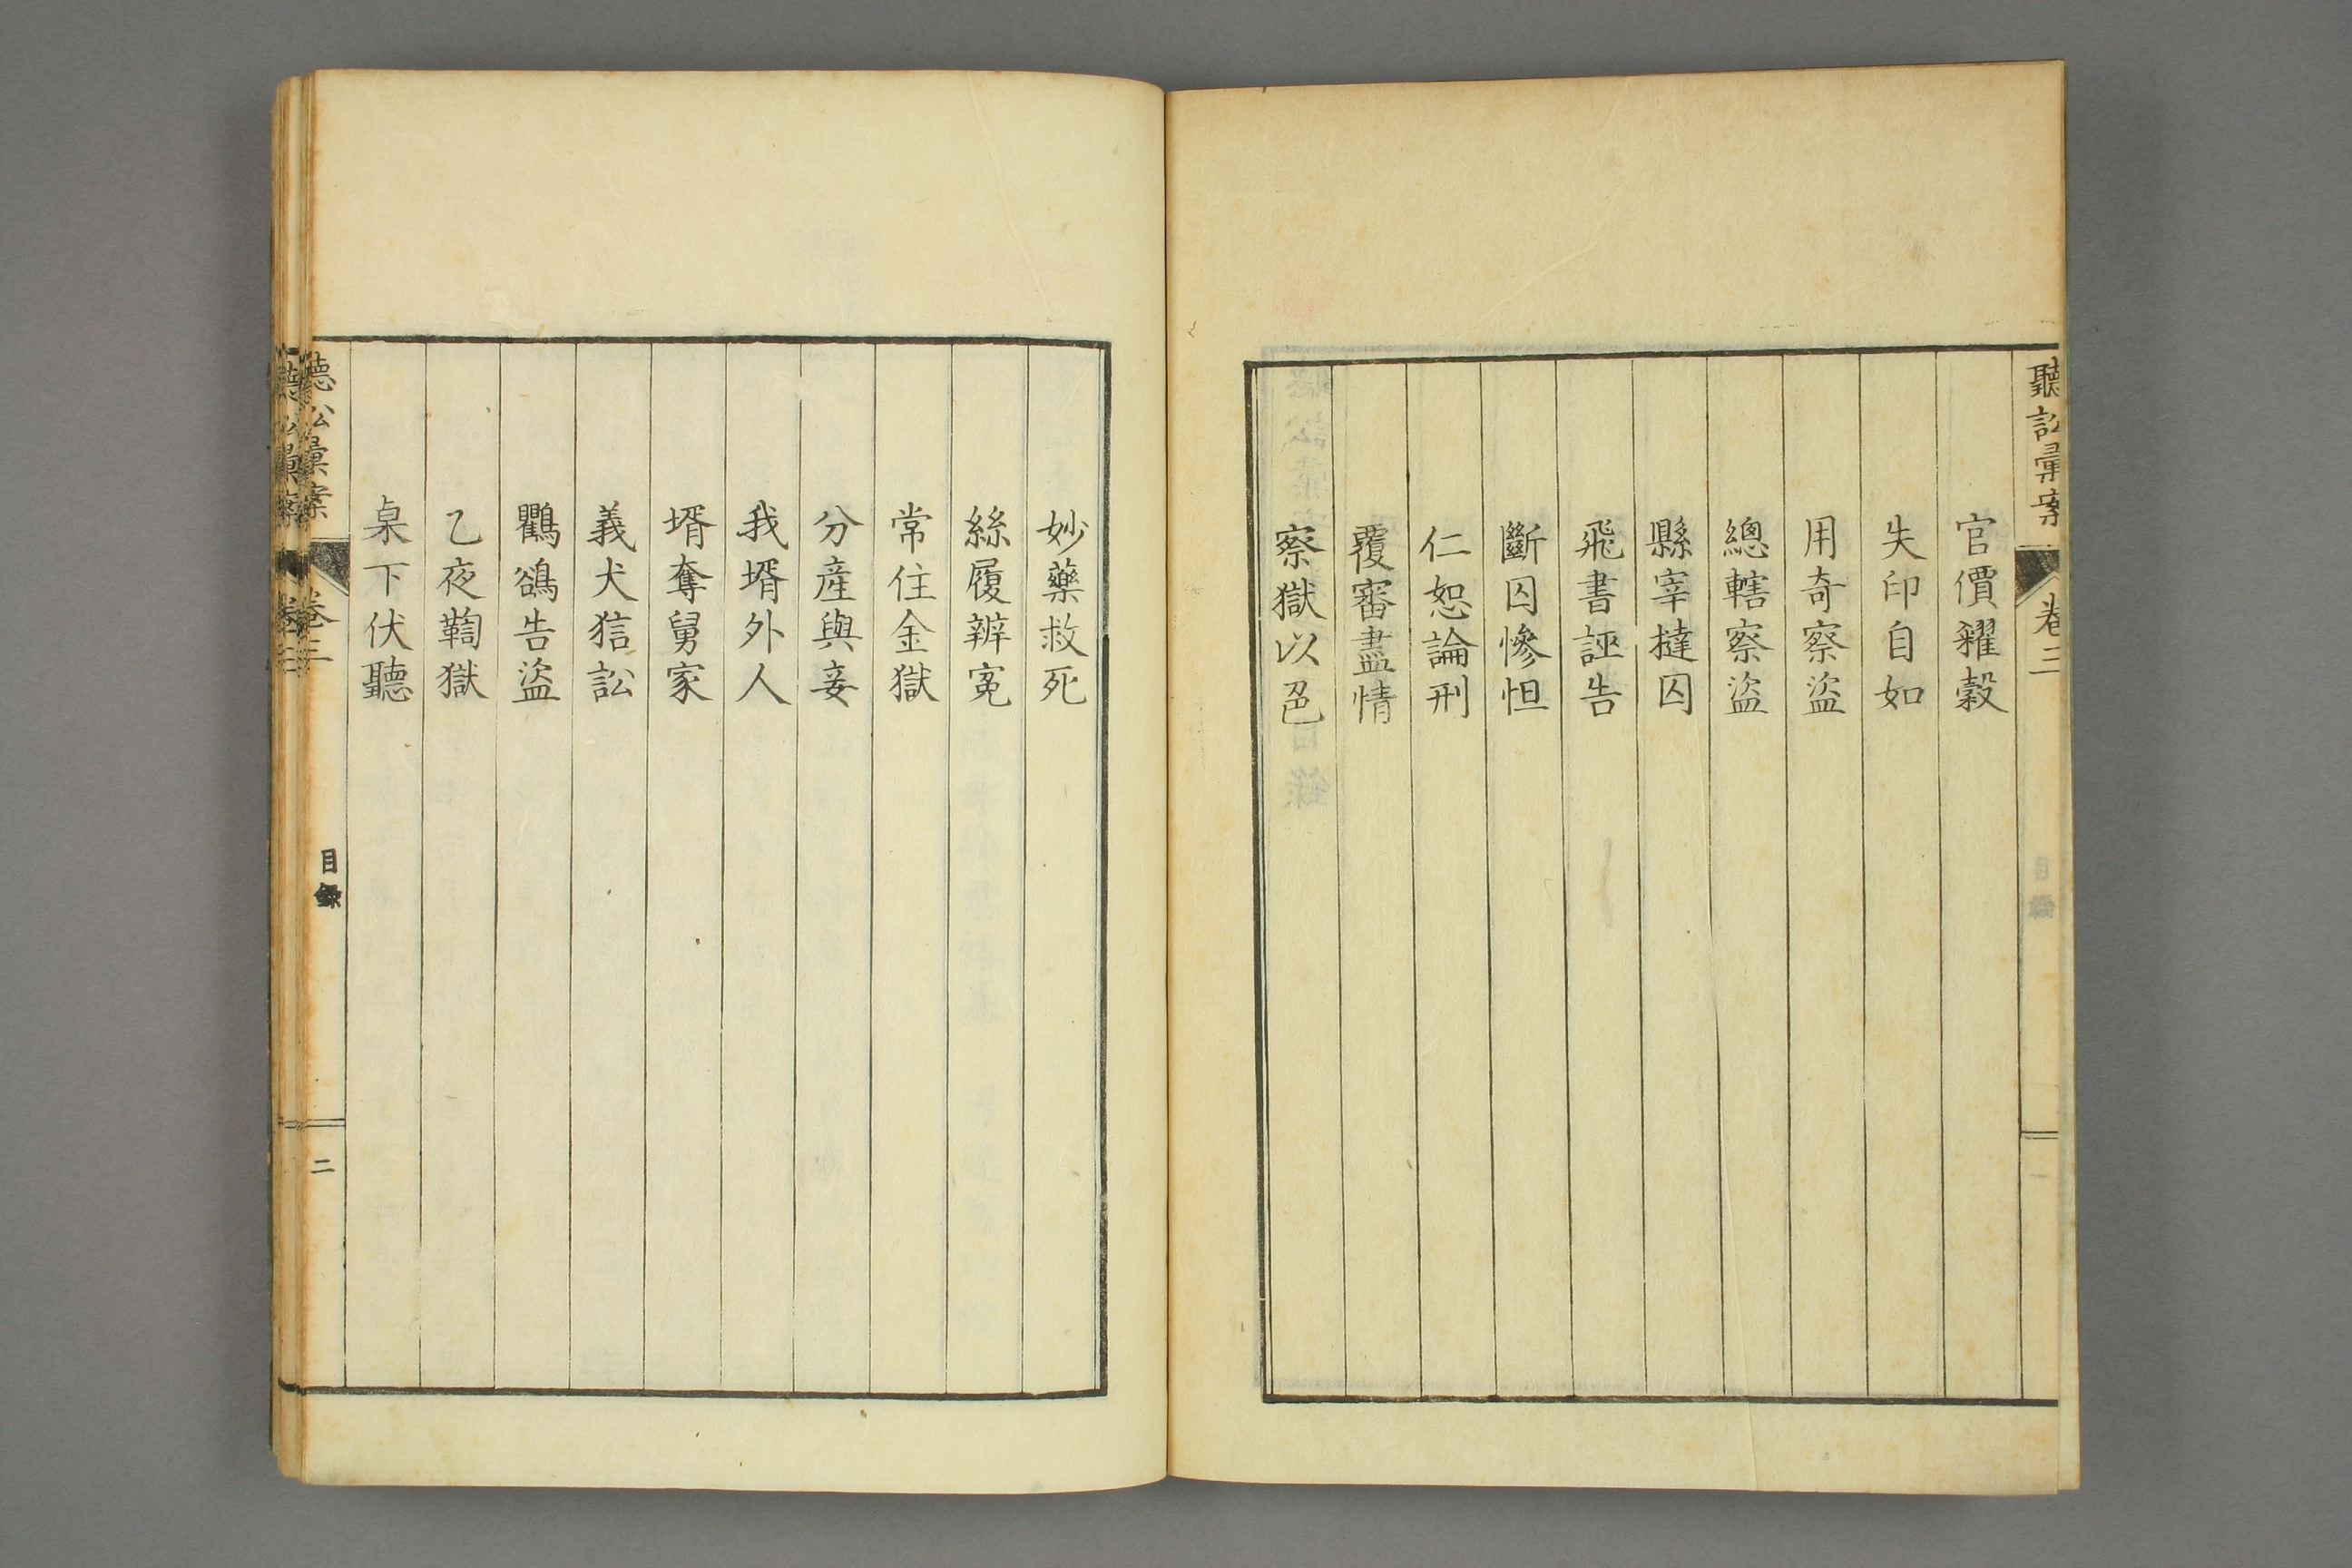 聽訟彙案
卷三
官價糴穀
失印自如
用奇察盜
總轄察盜
縣宰撻囚
飛書誣告
斷囚慘怛
仁恕論刑
覆審盡情
察獄以色
妙藥救死
絲履辨冤
常住金獄
分產與妾
我壻外人
壻奪舅家
義犬狺訟
鸜鵒告盜
乙夜鞫獄
桌下伏聽
聽訟彙案
卷三
目錄
二